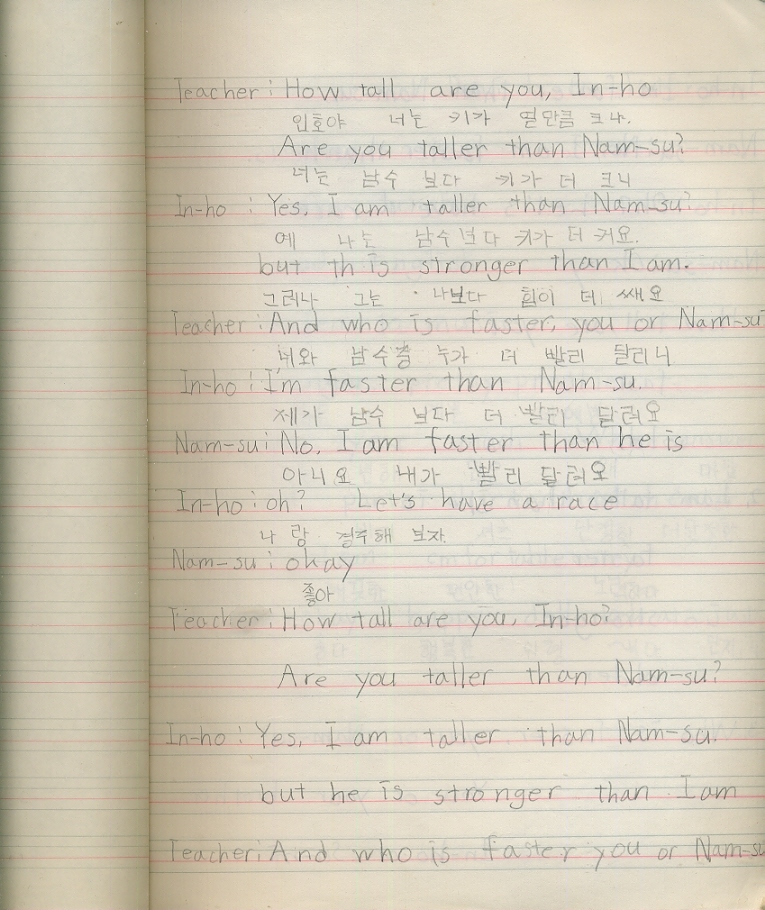 Teacher : How tall are you, In-ho
인호야 너는 키가 얼만큼 크냐.
Are you taller than Nam-su?
너는 남수 보다 키가 더 크니
In-ho : Yes, I am taller than Nam-su?
예 나는 남수보다 키가 더 커요.
but th is stronger than I am.
그러나 그는 나보다 힘이 더 쌔요
Teacher : And who is faster, you or Nam-su
너와 남수중 누가 더 빨리 달리니
In-ho : I'm faster than Nam-su.
제가 남수 보다 더 빨리 달려요
Nam-su : No, I am faster than he is
아니요 내가 빨리 달려요
In-ho : oh? Let's have a race
나 랑 경주해 보자
Nam-su : okay
좋아
Teacher : How tall are you, In-ho?
Are you taller than Nam-su?
In-ho : Yes, I am taller than Nam-su.
but he is stronger than I am
Teacher : And who is faster you or Nam-su